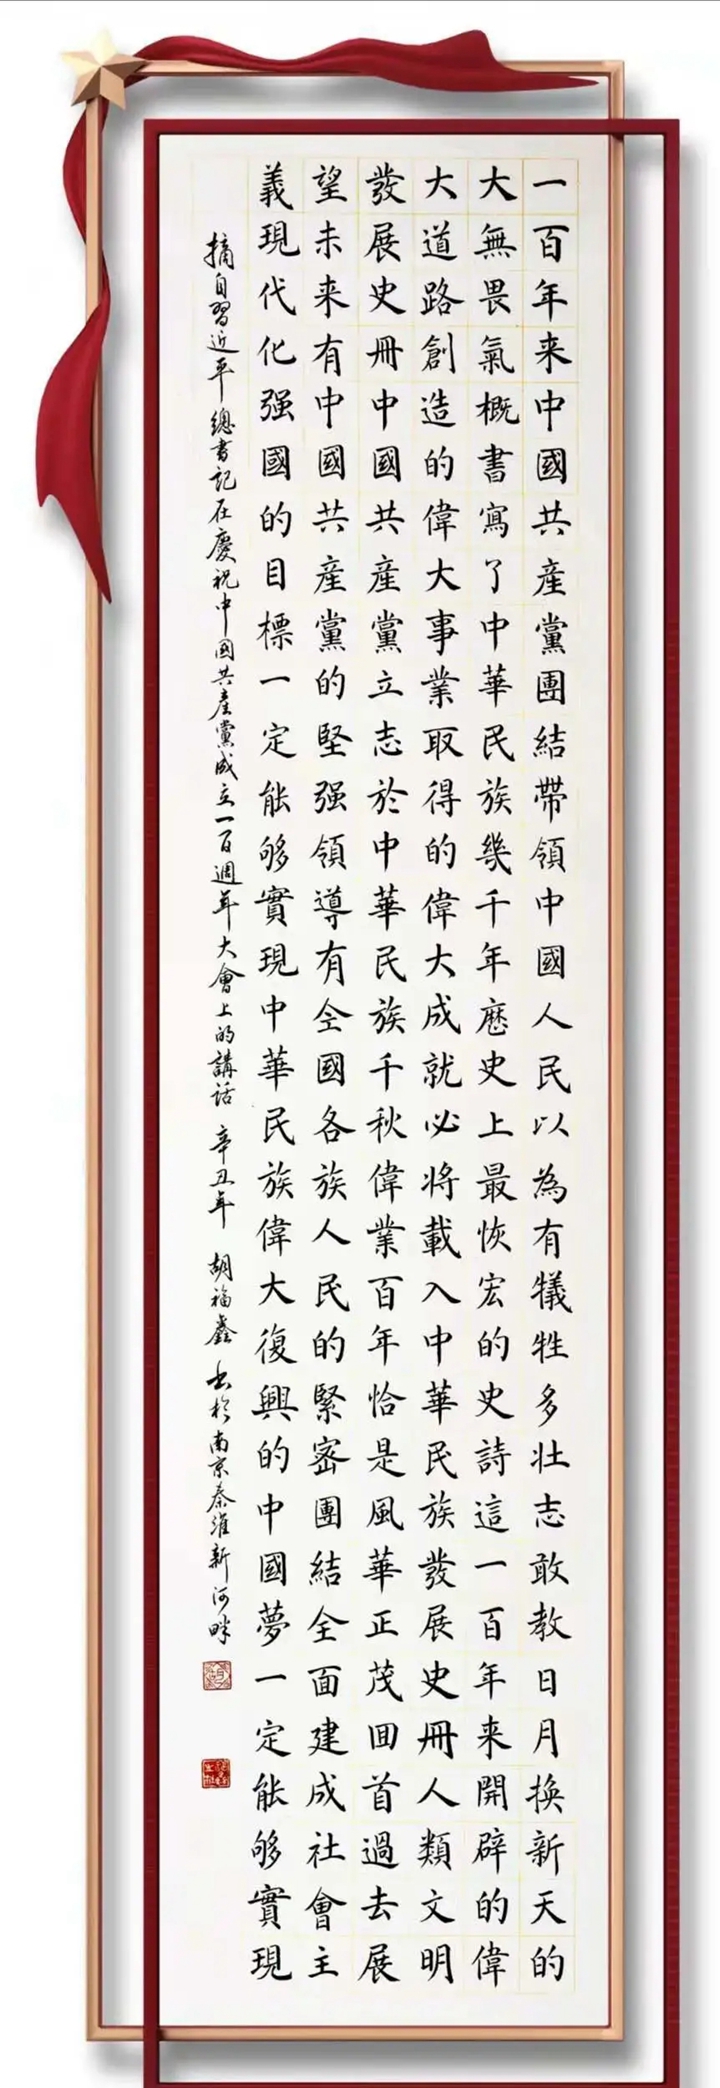 一百年来中國共產黨團結帶領中國人民以為有犧牲多壯志敢教日月換新天的
大無畏氣概書寫了中華民族幾千年歷史上最恢宏的史詩這一百年来開辟的偉
大道路創造的偉大事業取得的偉大成就必将載入中華民族發展史冊人類文明
發展史冊中國共產黨立志於中華民族千秋偉業百年恰是風華正茂回首過去展
望未来有中國共產黨的堅强領導有全國各族人民的緊密團結全面建成社會主
義現代化强國的目標一定能够實現中華民族偉大復興的中國夢一定能够實現
摘自習近平總書記在慶祝中國共產黨成立一百週年大會上的講話 辛丑年 胡福鑫 書於南京秦淮新河畔